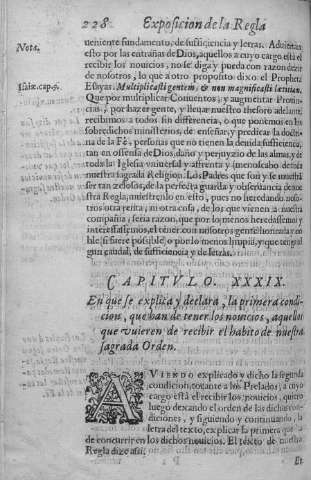 228 Exposicion de la Regla
Nota.
ueniente fundamento, de sufficiencia y letras. Aduiertan
esto por las entrañas de Dios, aquellos a cuyo cargo está el
recibir los nouicios, no se diga y pueda con razon dezir
de nosotros, lo que a otro proposito dixo el Propheta
Isaiæ. cap. 9.
Esayas. Multiplicasti gentem, & non magnificasti lætitiam.
Que por multiplicar Conuentos, y augmentar Prouin-
cias, por hazer gente, y lleuar nuestro thesoro adelante
recibimos a todos sin differencia, o que ponemos en los
sobredichos ministerios, de enseñar, y predicar la doctri-
na de la Fè, personas que no tienen la deuida sufficiencia,
en offensa de Dios, daño y perjuyzio de las almas, y de
toda la Iglesia vniuersal y afrenta y menoscabo desta
nuestra sagrada Religion. Los Padres que son y se muestran
ser tan zelosos, de la perfecta guarda y obseruancia de nue
stra Regla, muestrenlo en esto, pues no heredando noso-
tros otra renta, ni otra cosa, de los que vienen a nuestra
compañia, seria razon, que por lo menos heredassemos y
interessassemos, el tener con nosotros gente honrada y no
ble, si fuere possible, o por lo menos limpia, y que tenga al
gun caudal, de sufficiencia y de letras.
CAPITVLO. XXXIX.
En que se explica y declara, la primera condi-
cion, que han de tener los nouicios, aquellos
que vuieren de recibir el habito de nuestra
sagrada Orden.
AVIENDO explicado y dicho la segunda
condicion, tocante a los Prelados, a cuyo
cargo està el recibir los nouicios, quiero
luego dexando el orden de las dichas con-
diciones, y siguiendo y continuando, la
letra del texto, explicar la primera que a
de concurrir en los dichos nouicios. El texto de nuestra
Regla dize assi;
Et